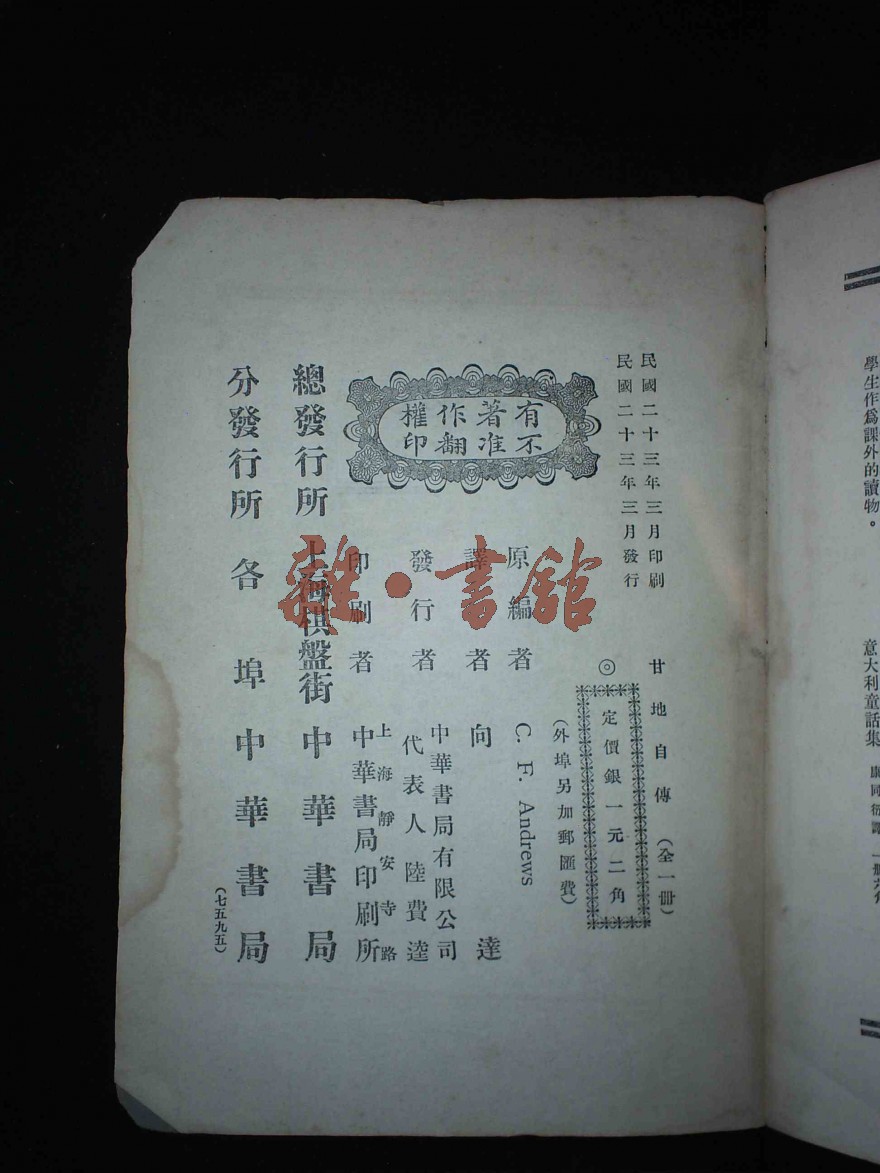 學生作爲課外的讀物。
意大利童話集
民國二十三年三月印刷
民國二十三年三月發行
甘地自傳（全一冊）
◎定價銀一元二角
（外埠另加郵匯費）
有著作權
不准翻印
原編者 C. F. Andrews
譯者 向達
發行者 中華書局有限公司
代表人陸費逵
印刷者 上海靜安寺路
中華書局印刷所
總發行所 上海棋盤街 中華書局
分發行所 各埠中華書局
（七五九五）
雜·書館